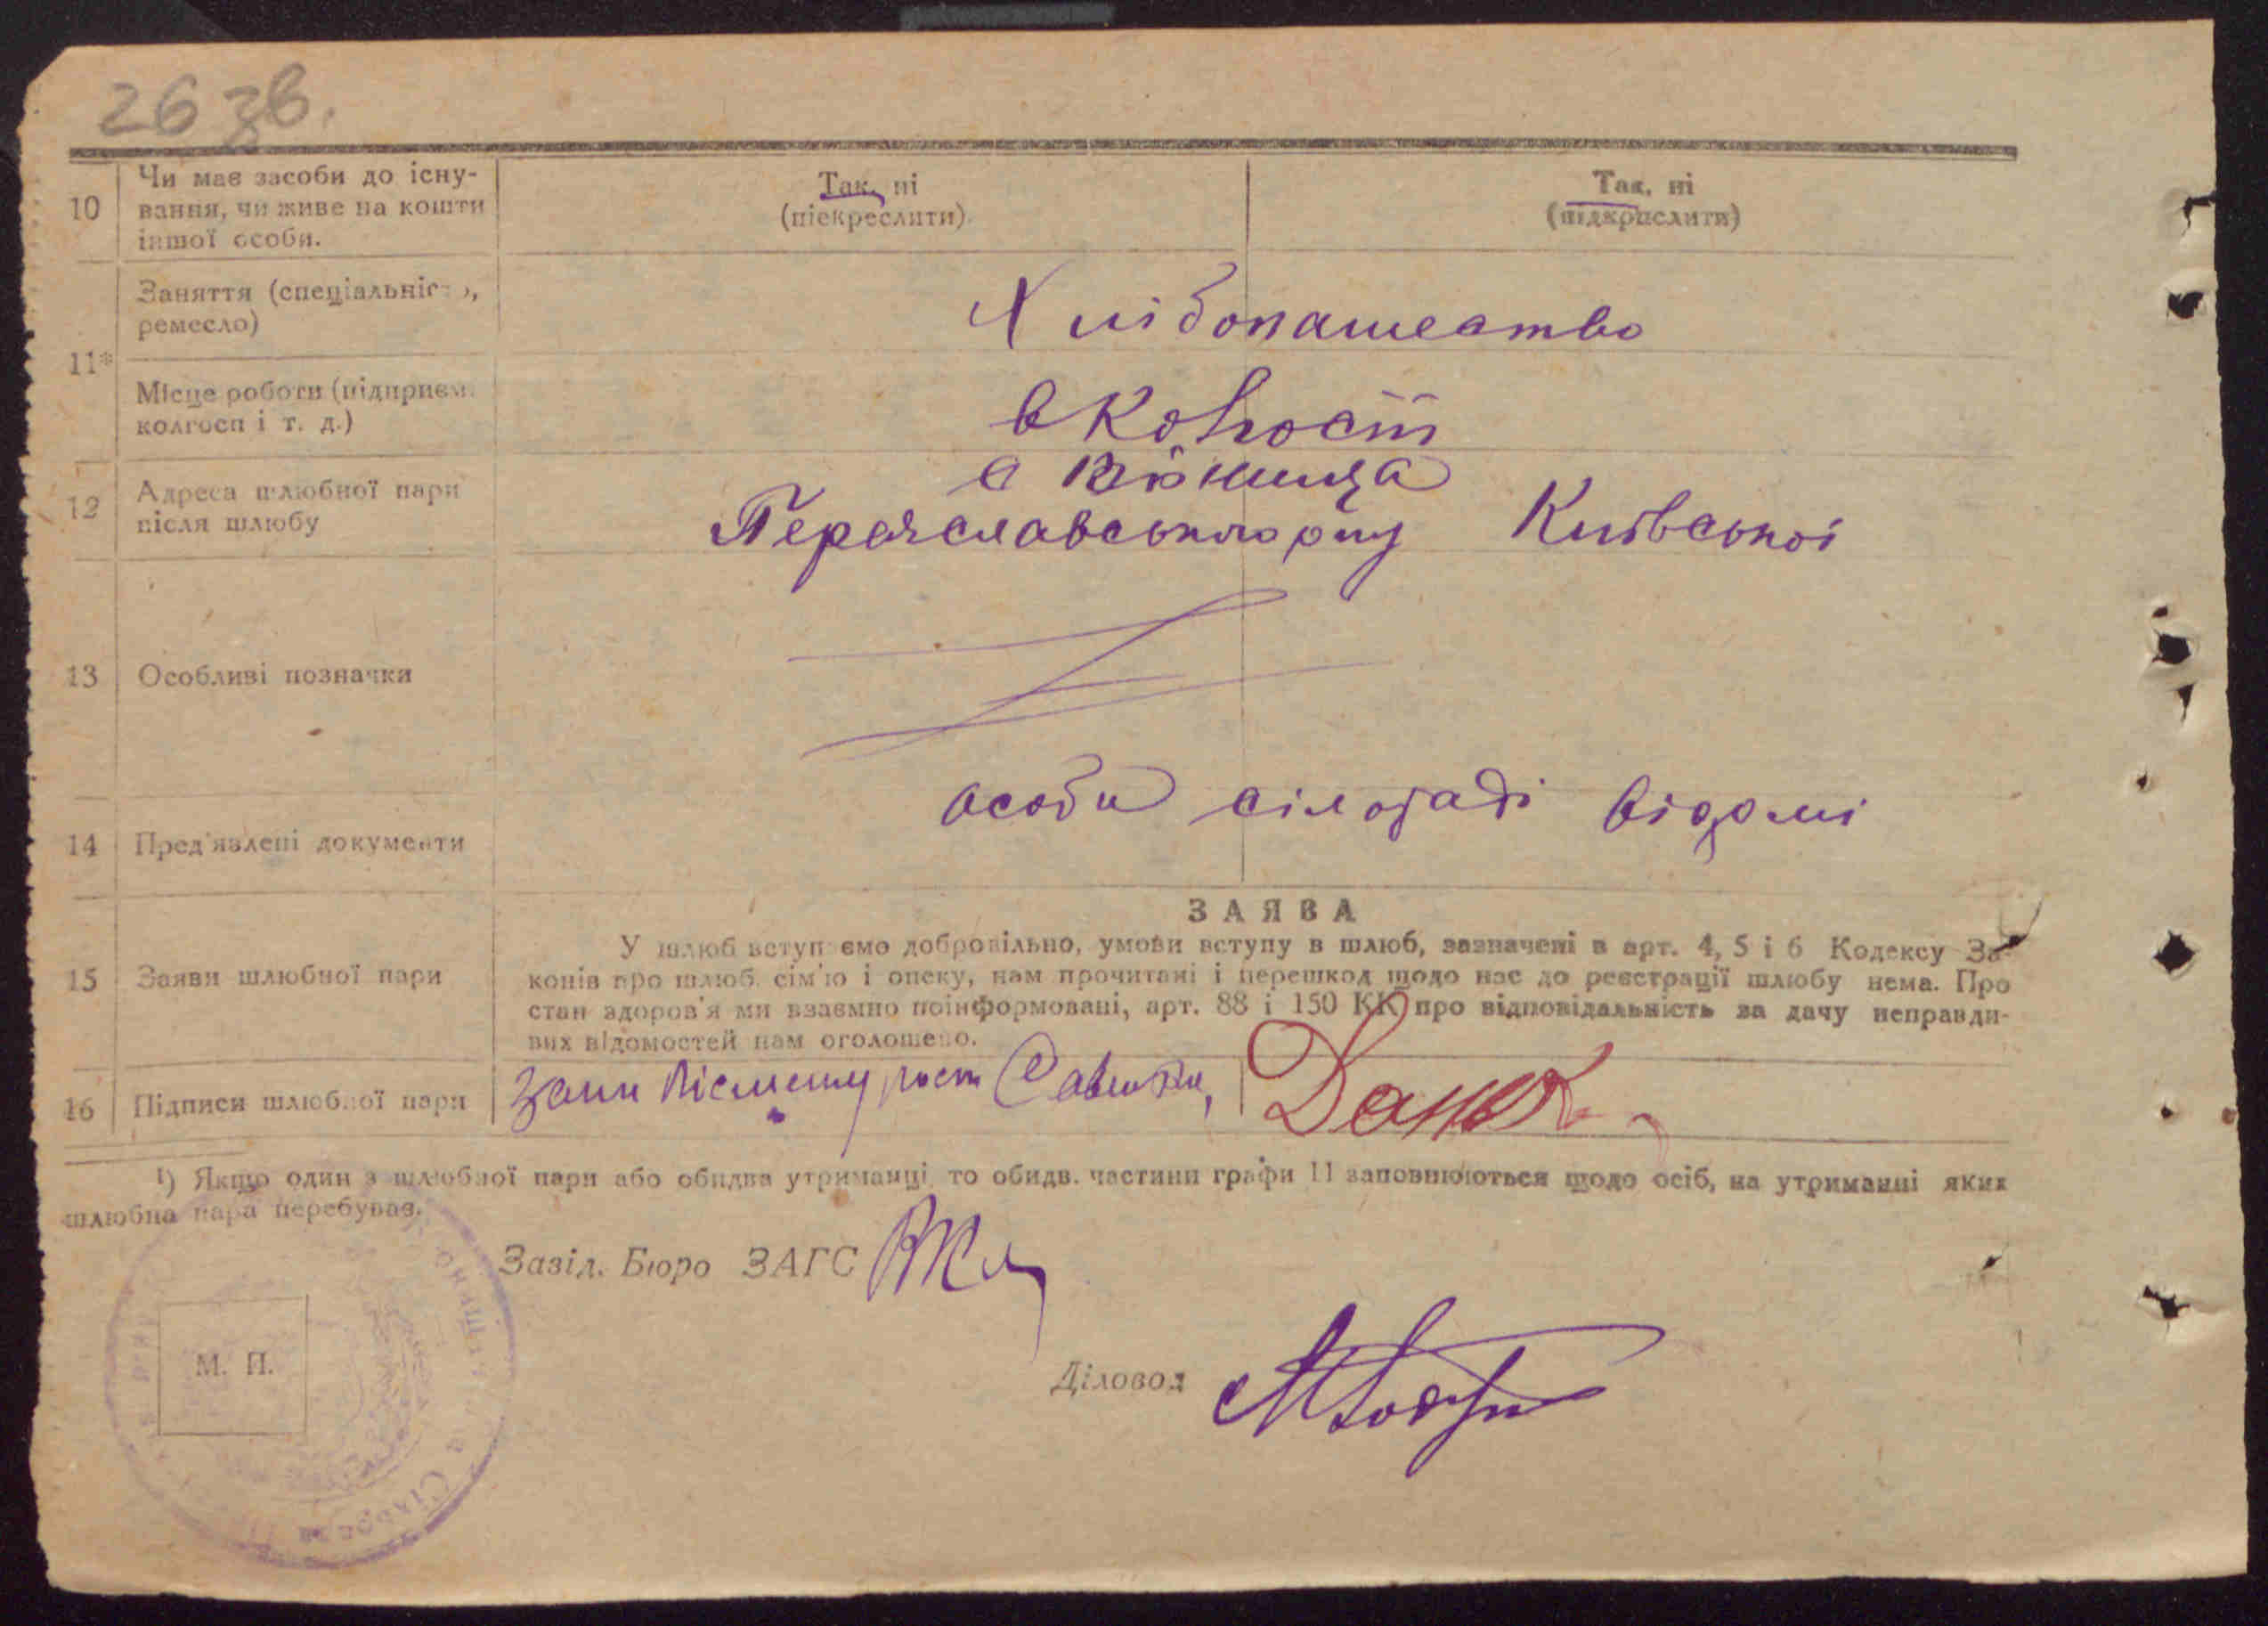 26 зв.
10 Чи має засоби до існу-
вання, чи живе на кошти
іншої особи.
Так, ні
(піекреслити)
Так, ні
(підкрислити)
11*
Заняття (спеціальність,
ремесло)
Хлібопашество
Місце роботи (підприєм.
колгосп і т. д.)
в колгоспі
12 Адреса шлюбної пари
після шлюбу
с Вюнища
Переяславського р-ну Київської
13 Особливі позначки
14 Пред'явлені документи
особи сілораді відомі
15 Заяви шлюбної пари
ЗАЯВА
У шлюб вступаємо добровільно, умови вступу в шлюб, зазначені в арт. 4, 5 і 6 Кодексу За-
конів про шлюб. сім'ю і опеку, нам прочитані і перешкод щодо нас до реєстрації шлюбу нема. Про
стан здоров'я ми взаємно поінформовані, арт. 88 і 150 КК про відповідальність за дачу неправди-
вих відомостей нам оголошено.
16 Підписи шлюбної пари
¹) Якщо один з шлюбної пари або обидва утриманці, то обидв. частини графи 11 заповнюються щодо осіб, на утриманні яких
шлюбна пара перебуває.
Завід. Бюро ЗАГС
М. П.
Діловод